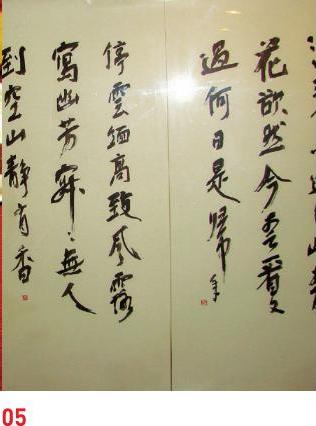 花欲然今春看又
過何日是歸年
停雲緬高致風露
寫幽芳寂〻無人
到空山静有香
05